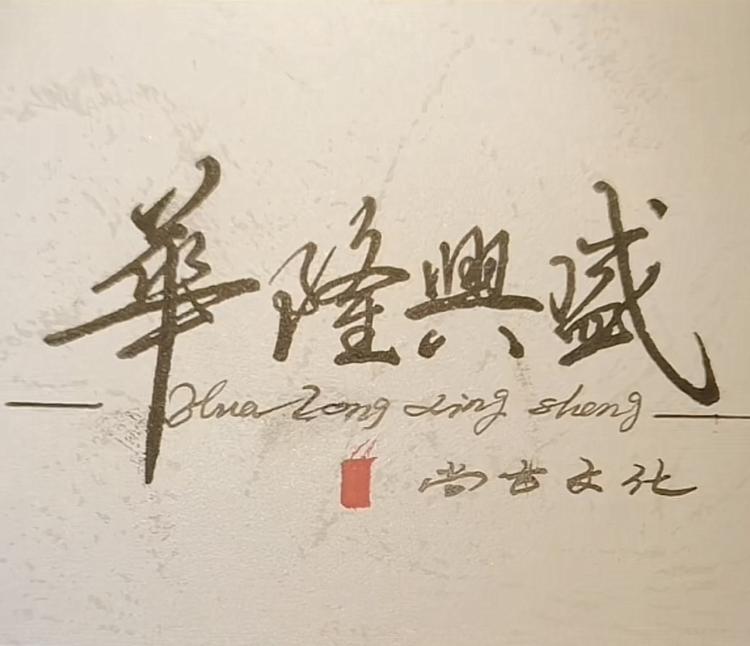 華隆興盛
Hua Long Xing sheng
尚古文化